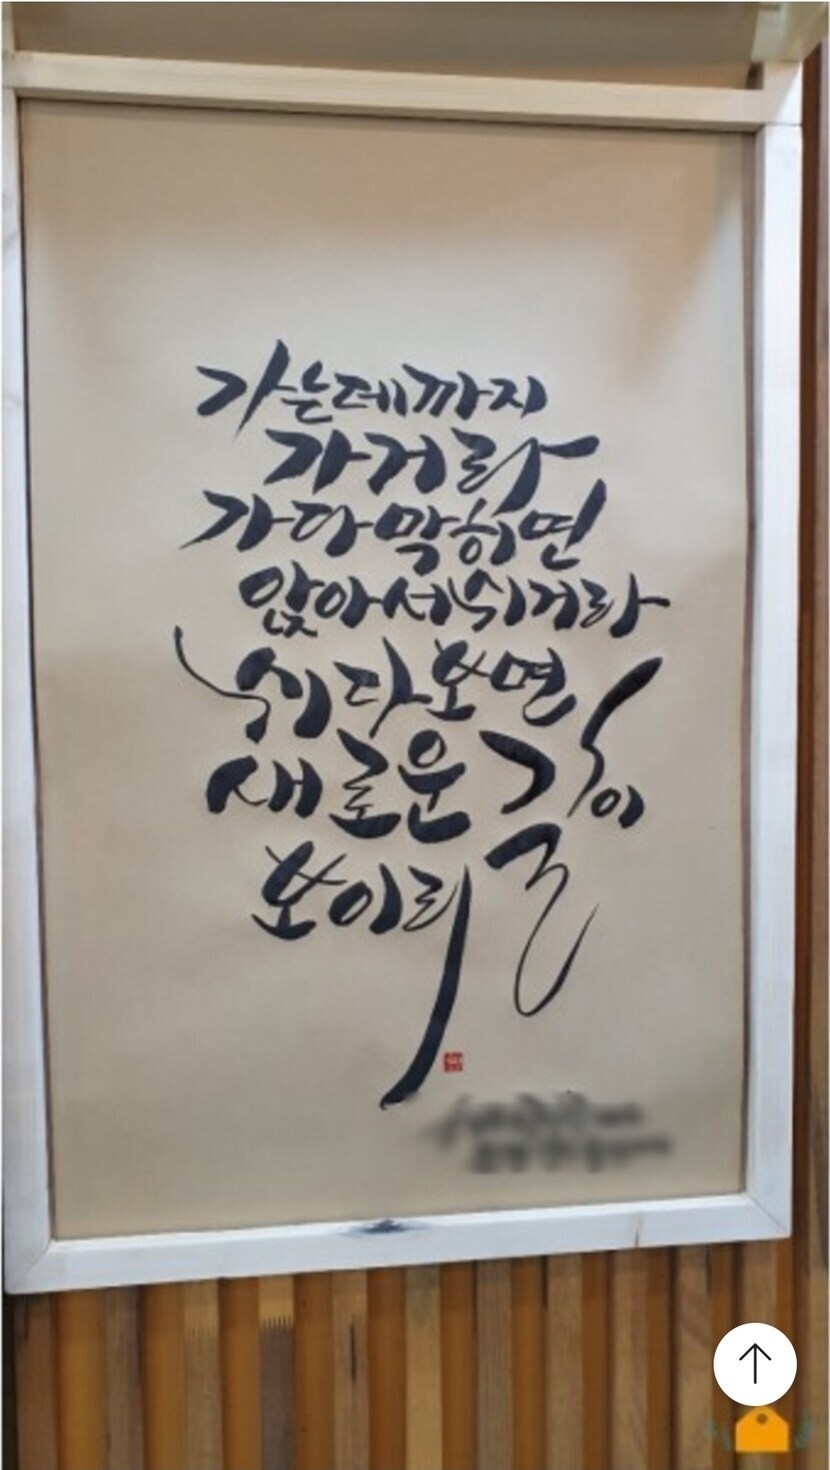 가는데까지
가거라
가다막히면
앉아서쉬거라
쉬다보면
새로운길이
보이리